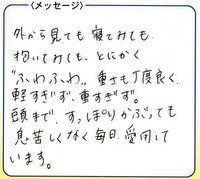 〈メッセージ〉
外から見ても 寝てみても、
抱いてみても、とにかく
"ふわふわ"。重さも丁度良く、
軽すぎず、重すぎず。
頭まで、すっぽりかぶっても
息苦しくなく毎日、愛用して
います。